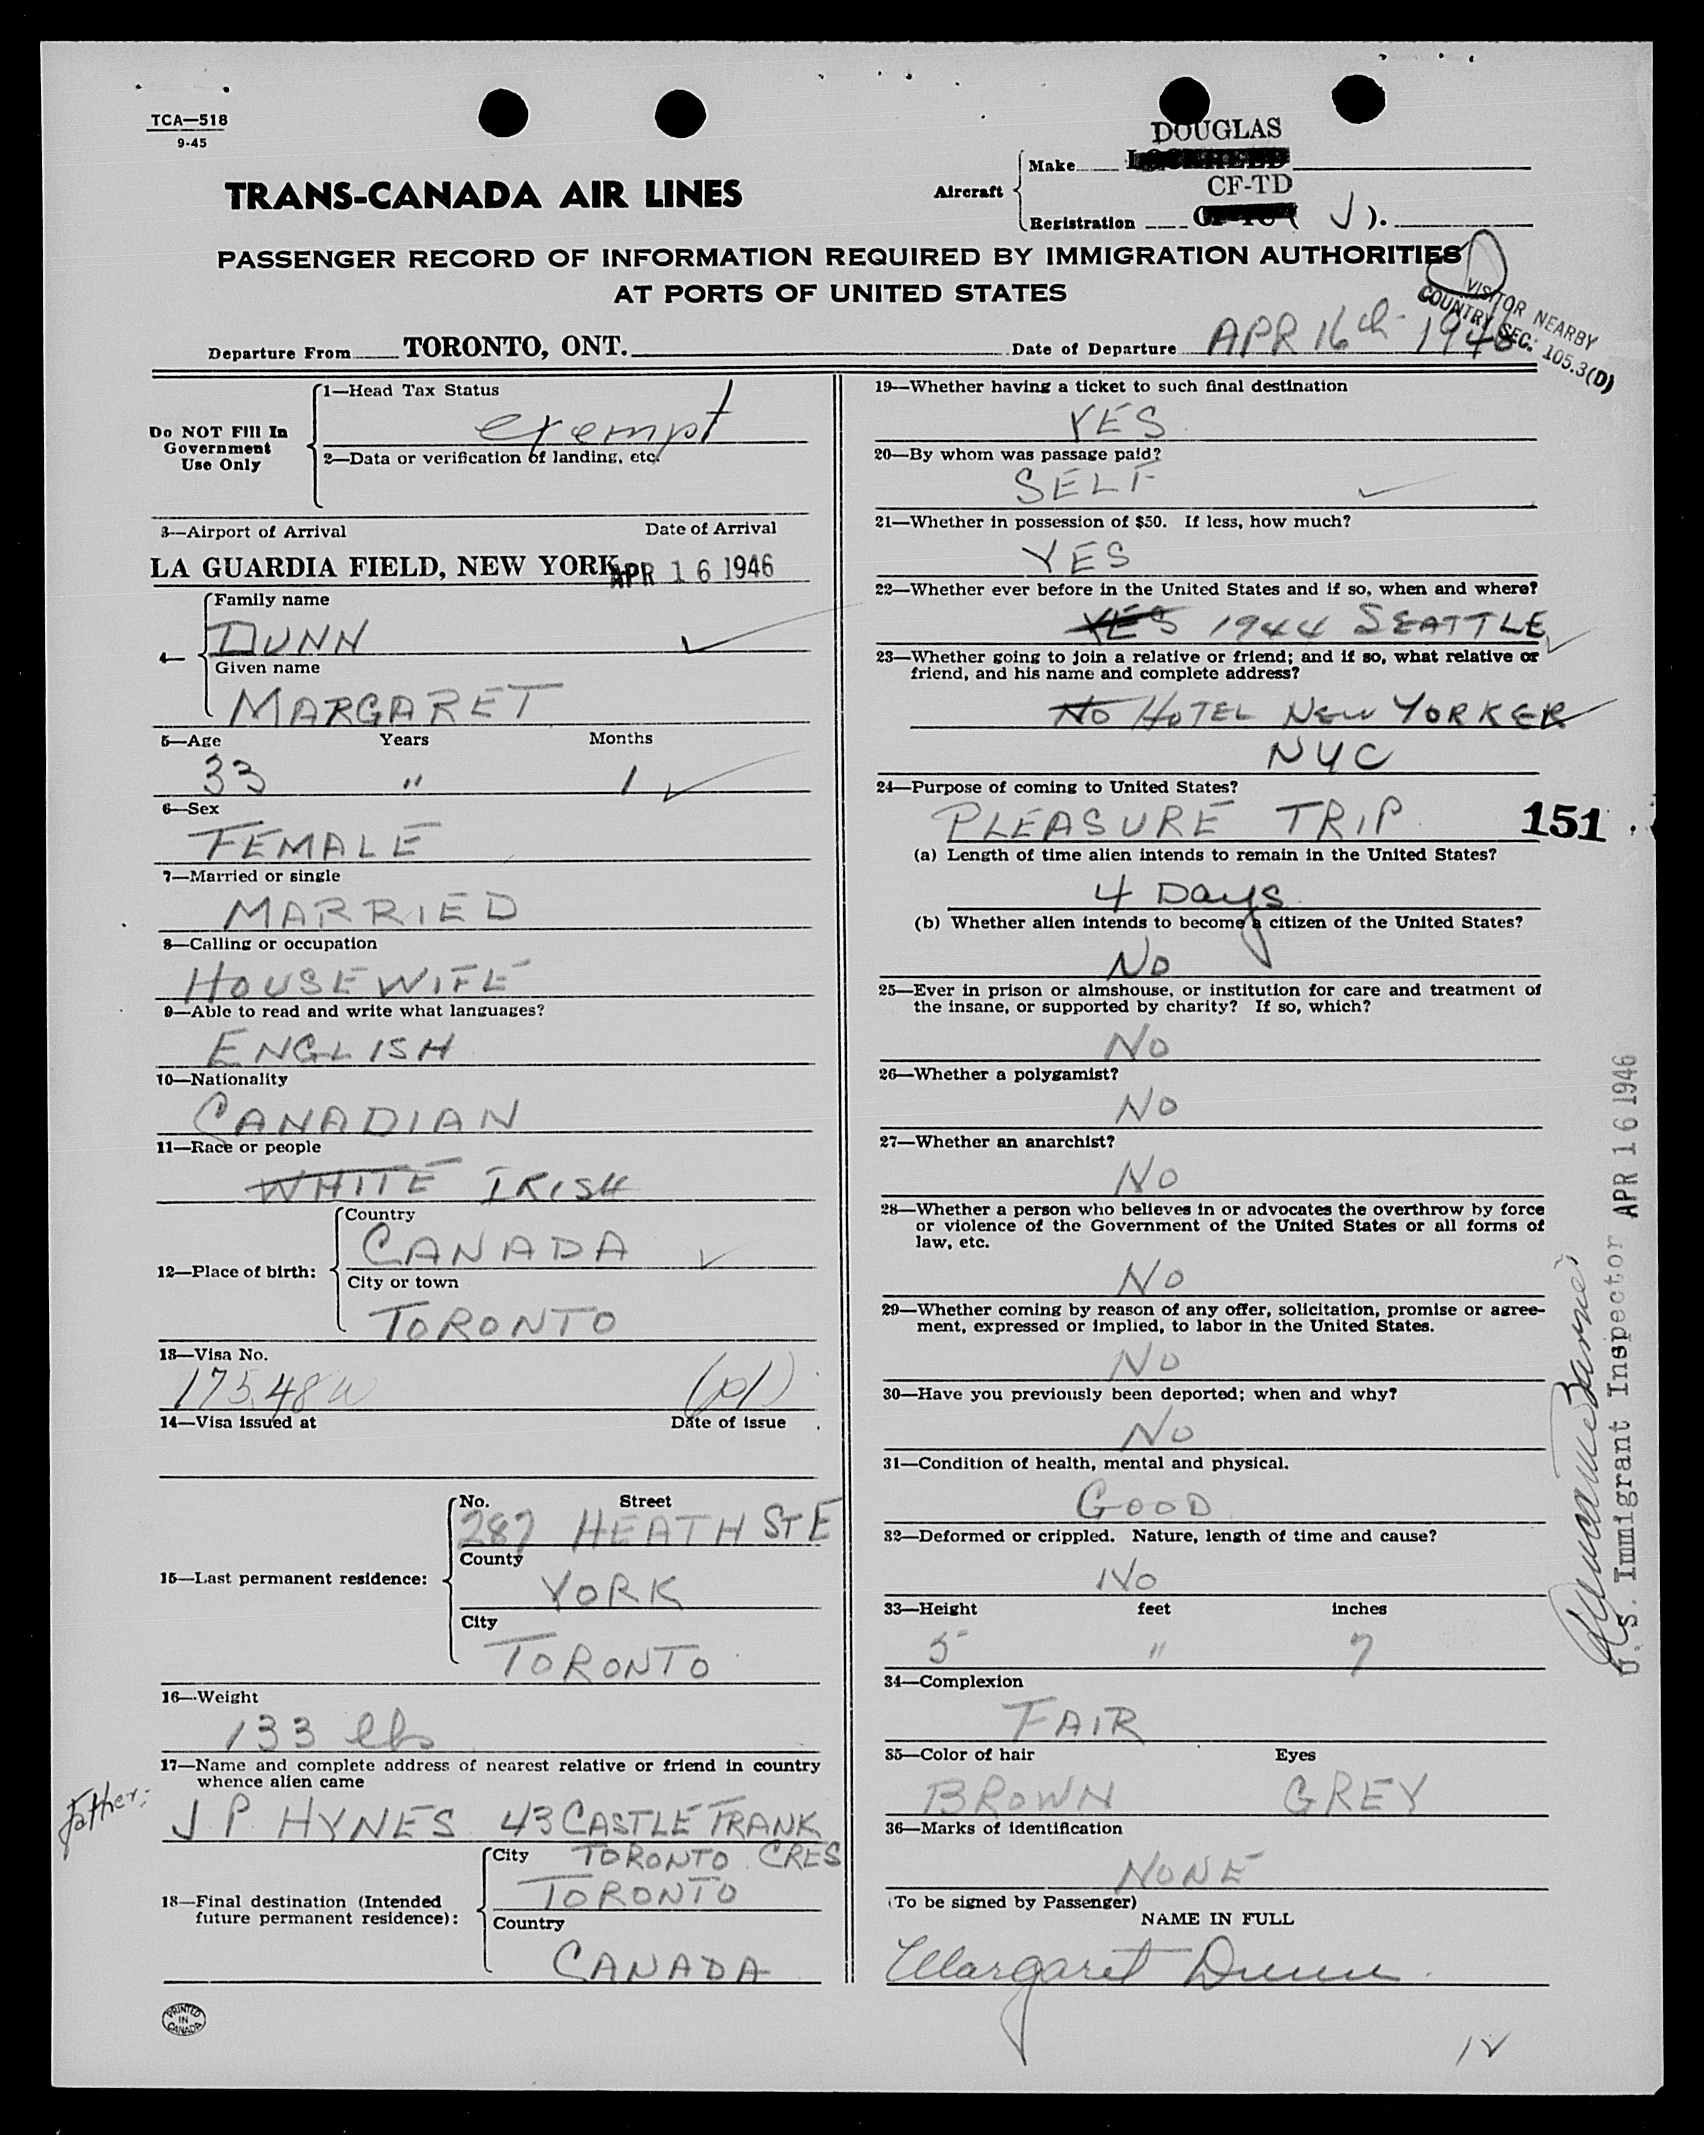 TCA—518
9-45
DOUGLAS
Aircraft
Make
CF-TD
Registration
J ).
TRANS-CANADA AIR LINES
PASSENGER RECORD OF INFORMATION REQUIRED BY IMMIGRATION AUTHORITIES
AT PORTS OF UNITED STATES
VISITOR NEARBY
COUNTRY SEC. 105.3(D)
Departure From TORONTO, ONT. Date of Departure APR 16th 1946
Do NOT Fill In
Government
Use Only
1—Head Tax Status
exempt
2—Data or verification of landing, etc.
3—Airport of Arrival Date of Arrival
LA GUARDIA FIELD, NEW YORK APR 16 1946
4—
Family name
DUNN
Given name
MARGARET
5—Age Years Months
33 " 1
6—Sex
FEMALE
7—Married or single
MARRIED
8—Calling or occupation
HOUSEWIFE
9—Able to read and write what languages?
ENGLISH
10—Nationality
CANADIAN
11—Race or people
WHITE IRISH
12—Place of birth:
Country
CANADA
City or town
TORONTO
13—Visa No.
14—Visa issued at Date of issue
15—Last permanent residence:
No. Street
287 HEATH ST E
County
YORK
City
TORONTO
16—Weight
133 lb
17—Name and complete address of nearest relative or friend in country
whence alien came
Father:
J P HYNES 43 CASTLE FRANK
TORONTO CRES
18—Final destination (Intended
future permanent residence):
City
TORONTO
Country
CANADA
PRINTED
IN
CANADA
19—Whether having a ticket to such final destination
YES
20—By whom was passage paid?
SELF
21—Whether in possession of $50. If less, how much?
YES
22—Whether ever before in the United States and if so, when and where?
YES 1944 SEATTLE
23—Whether going to join a relative or friend; and if so, what relative or
friend, and his name and complete address?
NO HOTEL NEW YORKER
NYC
24—Purpose of coming to United States?
PLEASURE TRIP
151
(a) Length of time alien intends to remain in the United States?
4 Days
(b) Whether alien intends to become a citizen of the United States?
NO
25—Ever in prison or almshouse, or institution for care and treatment of
the insane, or supported by charity? If so, which?
NO
26—Whether a polygamist?
NO
27—Whether an anarchist?
NO
28—Whether a person who believes in or advocates the overthrow by force
or violence of the Government of the United States or all forms of
law, etc.
NO
29—Whether coming by reason of any offer, solicitation, promise or agree-
ment, expressed or implied, to labor in the United States.
NO
30—Have you previously been deported; when and why?
NO
31—Condition of health, mental and physical.
GOOD
32—Deformed or crippled. Nature, length of time and cause?
NO
33—Height feet inches
5 " 7
34—Complexion
FAIR
35—Color of hair Eyes
BROWN GREY
36—Marks of identification
NONE
(To be signed by Passenger)
NAME IN FULL
Margaret Dunn
U. S. Immigrant Inspector APR 16 1946